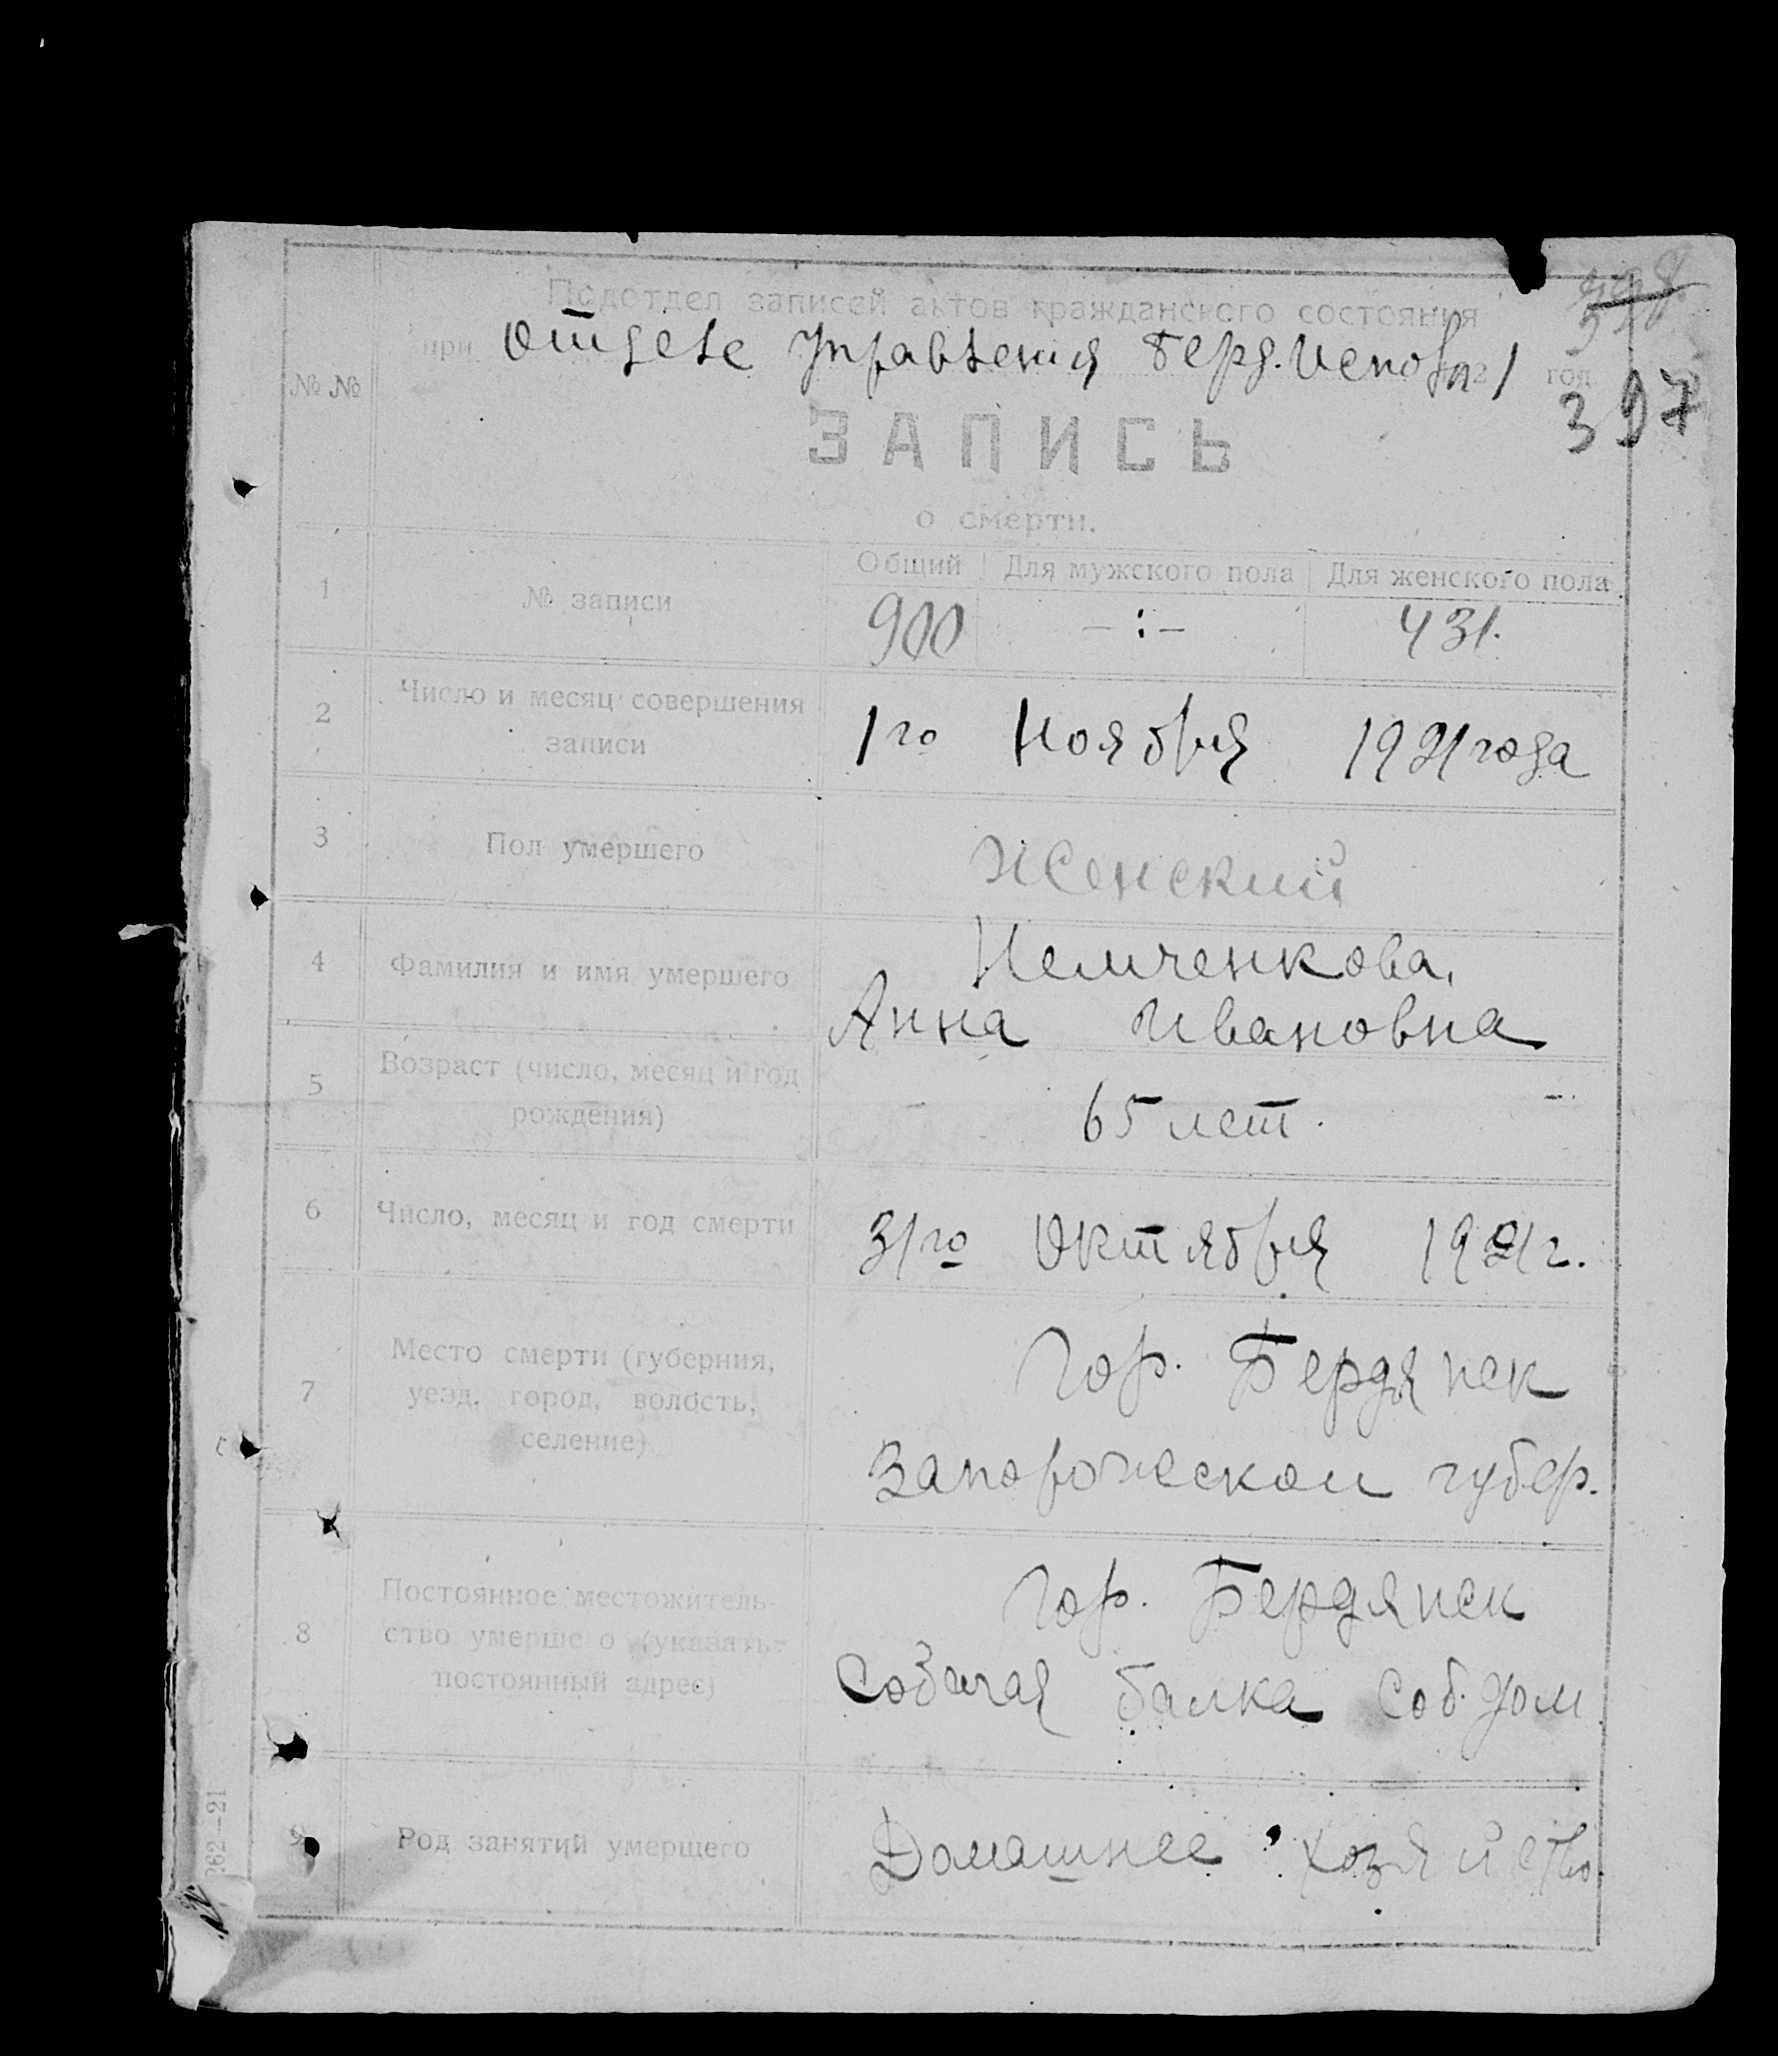 Подотдел записей актов гражданского состояния
при Отделе Управления Берд. Испол 192 1 год
397
№ №
ЗАПИСЬ
о смерти.
Общий Для мужского пола Для женского пола
1 № записи 900 – : – 431.
2 Число и месяц совершения
записи 1го Ноября 1921 года
3 Пол умершего Женский
Немченкова,
4 Фамилия и имя умершего
Анна Ивановна
5 Возраст (число, месяц и год
рождения) 65 лет.
6 Число, месяц и год смерти 31го Октября 1921 г.
7 Место смерти (губерния, Гор. Бердянск
уезд, город, волость,
селение) Запорожской губер.
8 Постоянное местожитель- Гор. Бердянск
ство умерше о (указать
постоянный адрес) Собачая балка Соб. дом
9 Род занятий умершего Домашнее хозяйство.
262—21